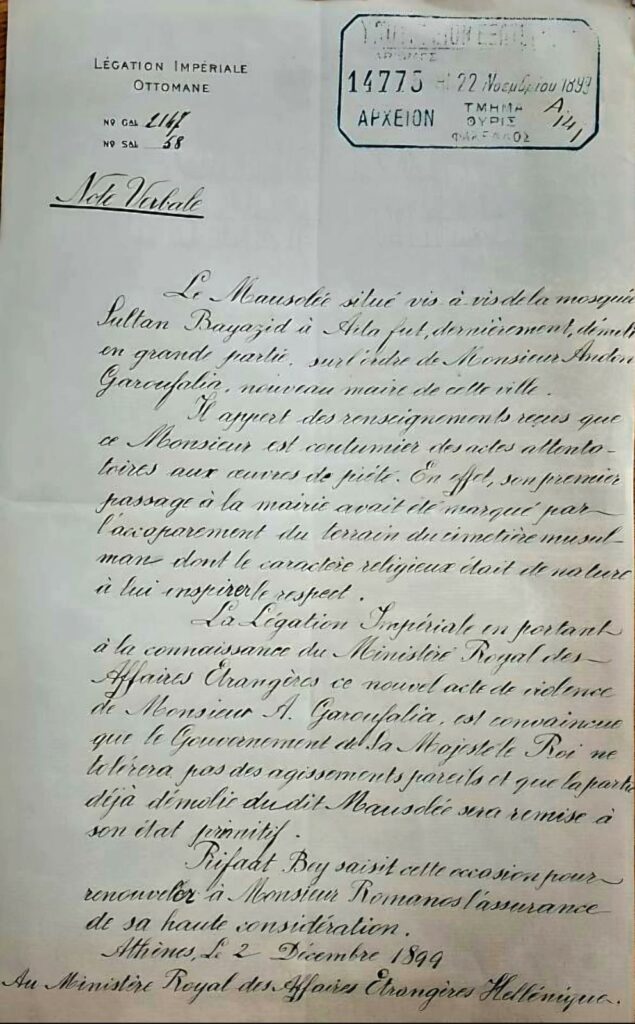 LÉGATION IMPÉRIALE
OTTOMANE
Nº GAL 2147
Nº SAL 58
14775 22 Νοεμβρίου 1899
ΑΡΧΕΙΟΝ ΤΜΗΜΑ Α
ΘΥΡΙΣ 141
ΦΑΚΕΛΛΟΣ
Note Verbale
Le Mausolée situé vis à vis de la mosquée
Sultan Bayazid à Arta fut, dernièrement, démoli
en grande partie, sur l'ordre de Monsieur Andon
Garoufalia, nouveau maire de cette ville.
Il appert des renseignements reçus que
ce Monsieur est coutumier des actes attenta-
toires aux œuvres de piété. En effet, son premier
passage à la mairie avait été marqué par
l'accaparement du terrain du cimetière musul-
man dont le caractère religieux était de nature
à lui inspirer le respect.
La Légation Impériale en portant
à la connaissance du Ministère Royal des
Affaires Etrangères ce nouvel acte de violence
de Monsieur A. Garoufalia, est convaincue
que le Gouvernement de Sa Majesté le Roi ne
tolérera pas des agissements pareils et que la partie
déjà démolie du dit Mausolée sera remise à
son état primitif.
Rifaat Bey saisit cette occasion pour
renouveler à Monsieur Romanos l'assurance
de sa haute considération.
Athènes, Le 2 Décembre 1899
Au Ministère Royal des Affaires Etrangères Hellénique.